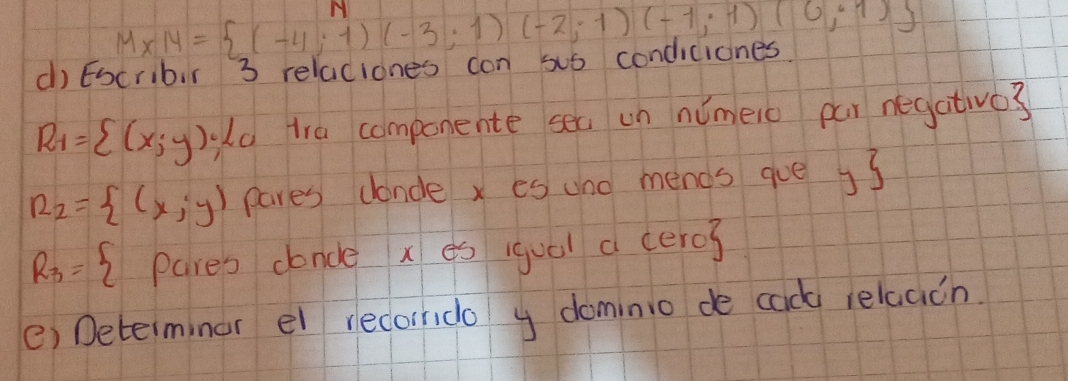 N
MxN = { (-4;1) (-3;1) (-2;1) (-1;1) (0;1) }
d) Escribir 3 relaciones con sus condiciones.
R1 = { (x;y); la 1ra componente sea un número par negativo }
R2 = { (x;y) pares donde x es uno menos que y }
R3 = { pares donde x es igual a cero }
e) Determinar el recorrido y dominio de cada relación.